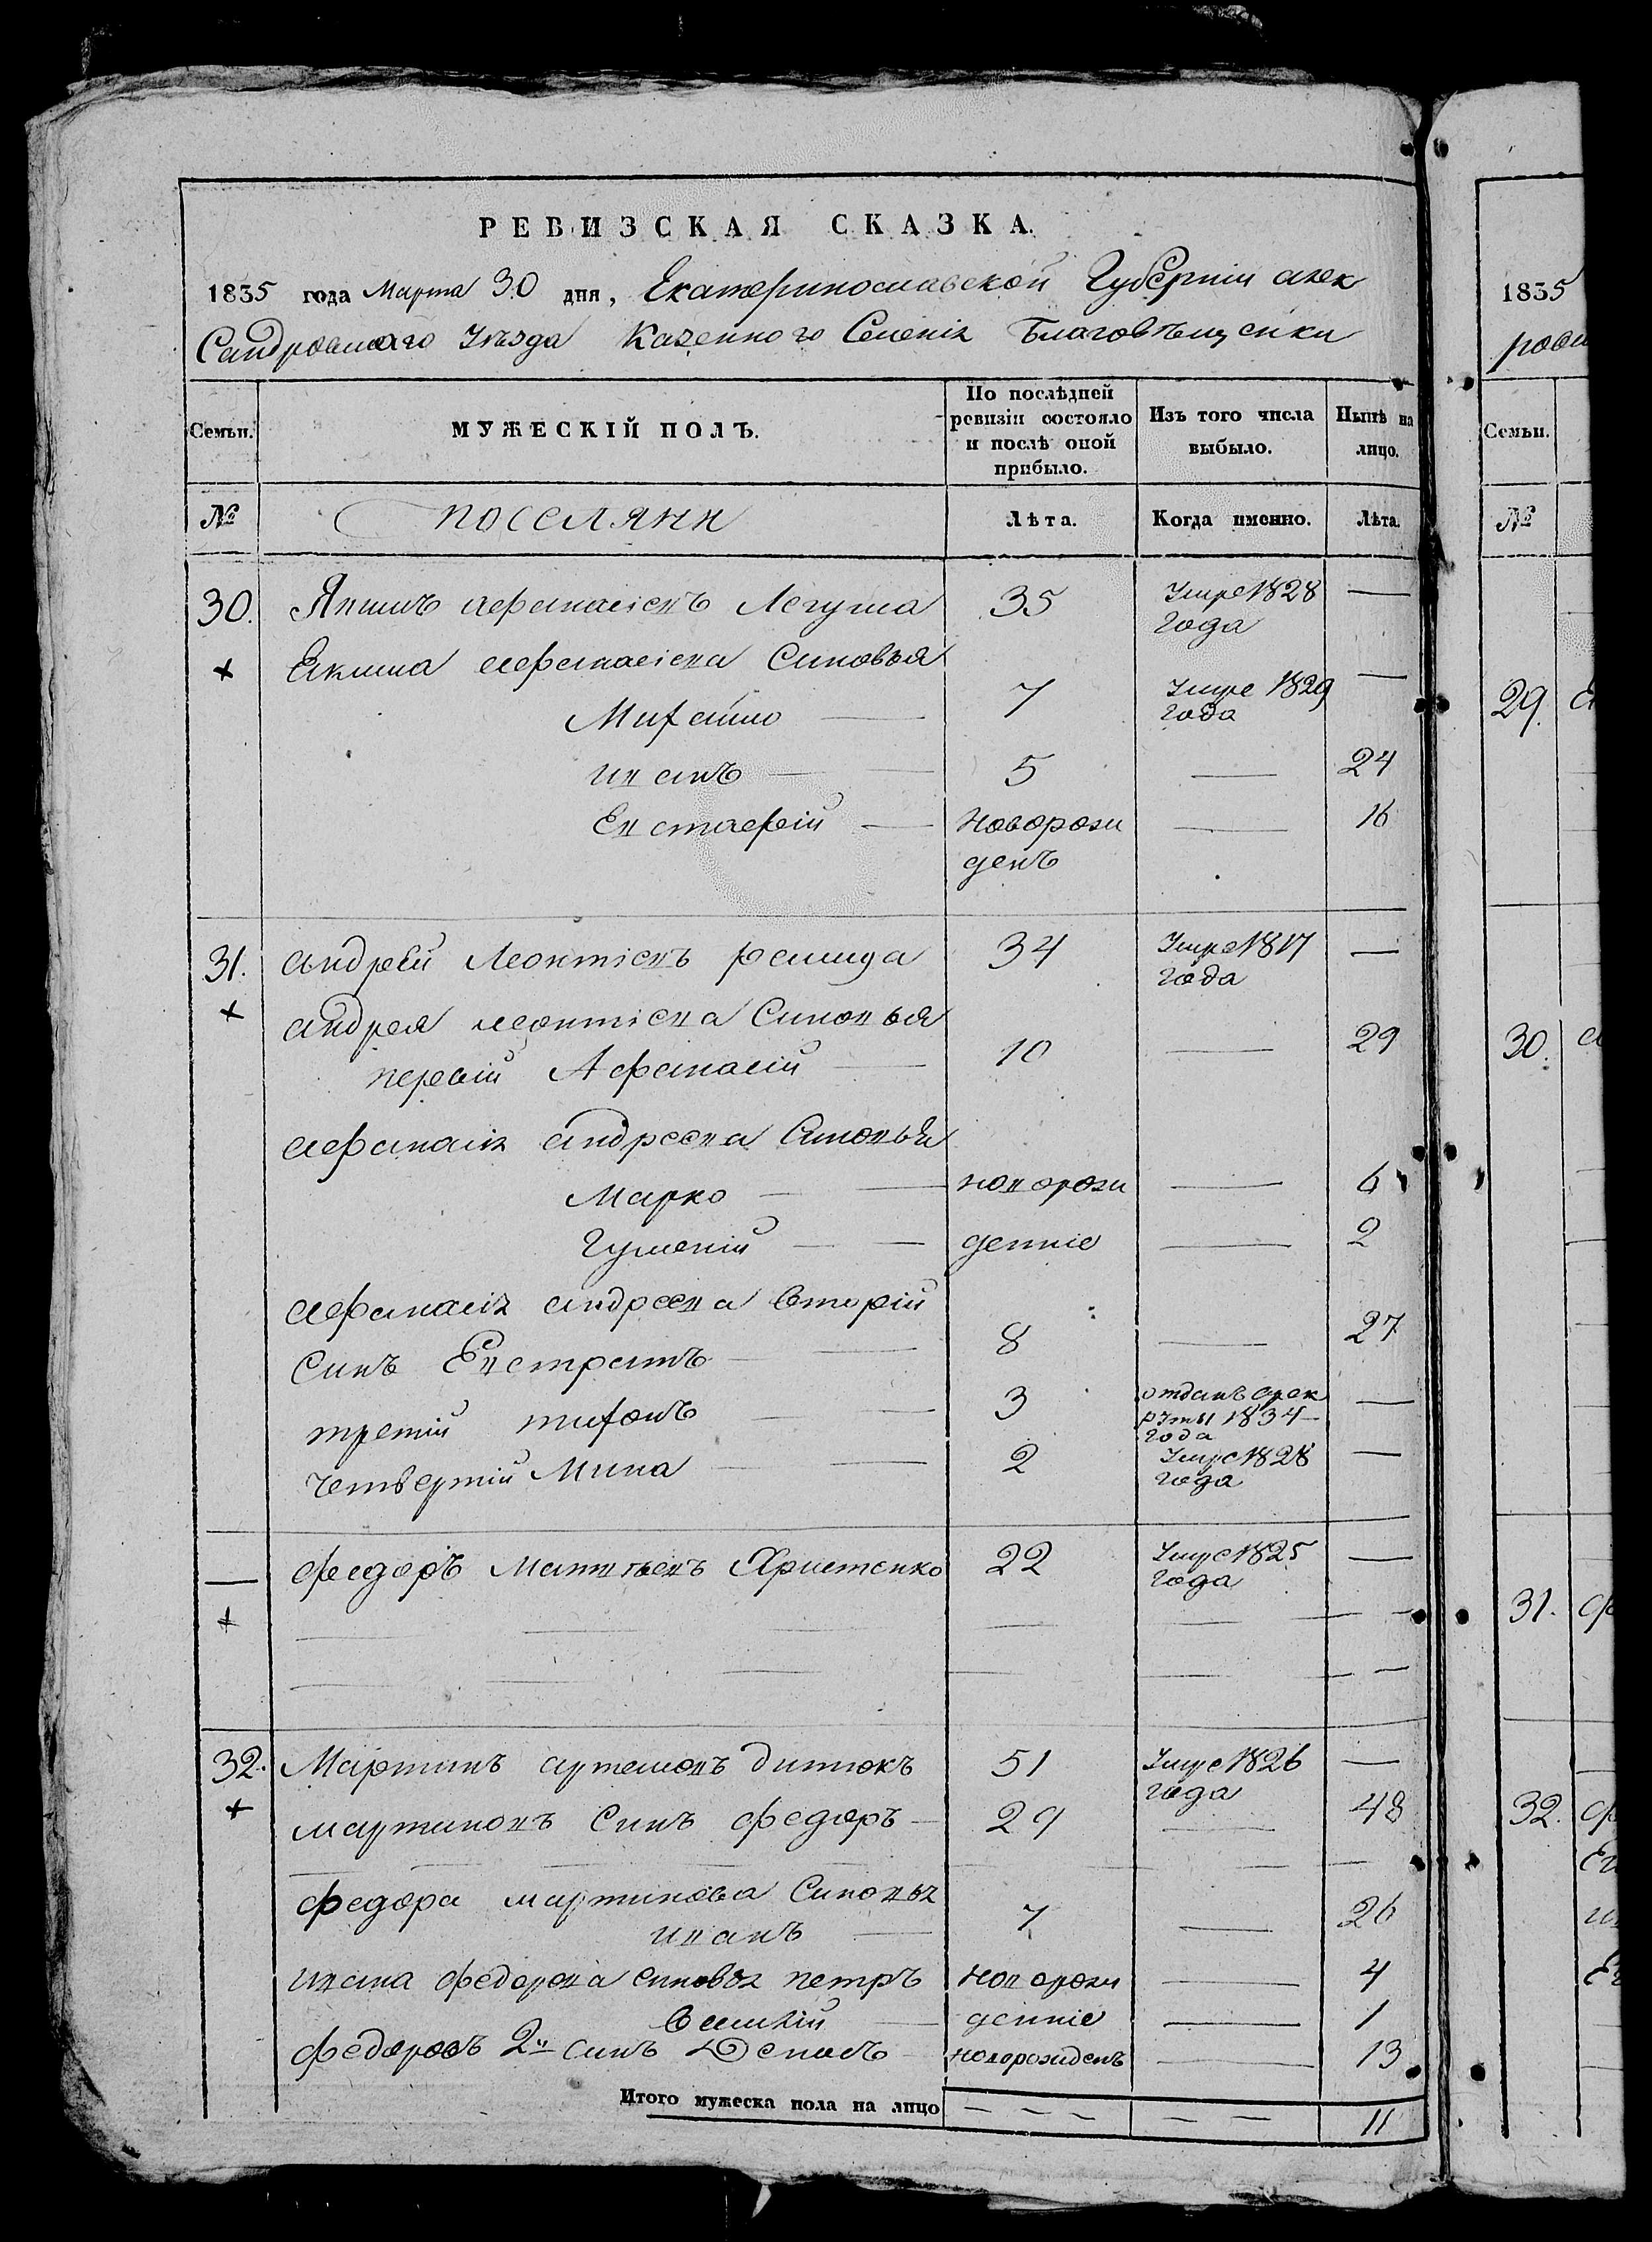 РЕВИЗСКАЯ СКАЗКА.
1835 года Марта 30 дня, Екатеринославской Губерніи алек
Сандровского Уѣзда Казенного Селенія Благовѣщенки
Семьи. МУЖЕСКІЙ ПОЛЪ. По послѣдней ревизіи состояло и послѣ оной прибыло. Изъ того числа выбыло. Нынѣ на лицо.
№ поселянѣ Лѣта. Когда именно. Лѣта.
30. Якимъ афанасіевъ Легуша 35 Умре 1828 года —
Екима афанасіева Синовья
Михайло — 7 Умре 1829 года —
иванъ — 5 — 24
Евстафій — Новорожденъ — 16
31. андрей Леонтіевъ ремида 34 Умре 1817 года —
андрея леонтіева Синовья
первій Афанасій — 10 — 29
афанасія андреева Синовья
Марко — новорож — 6
Гуменій — денніе — 2
афанасія андреева Вторій
Синъ Евстратъ — 8 — 27
третій тихонъ — 3 отданъ врек руты 1834 года —
Четвертій Мина — 2 Умре 1828 года —
— федоръ Матвѣевъ Христенко 22 Умре 1825 года —
32. Мартинъ артемовъ дитюкъ 51 Умре 1826 года —
мартиновъ Синъ федоръ — 29 — 48
федора мартинова Синовья
иванъ — 7 — 26
ивана федорова синовья петръ новорож — 4
Василій — денніе — 1
федоровъ 2й синъ Денисъ новорожденъ — 13
Итого мужеска пола на лицо — — — — — 11
1835
рови
Семьи.
№
29.
30.
31.
32.